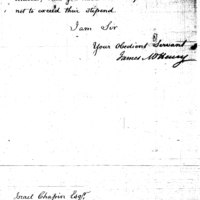 not to exceed their stipend
I am Sir
Your Obedient Servant
James McHenry
Israel Chapin Esqr.